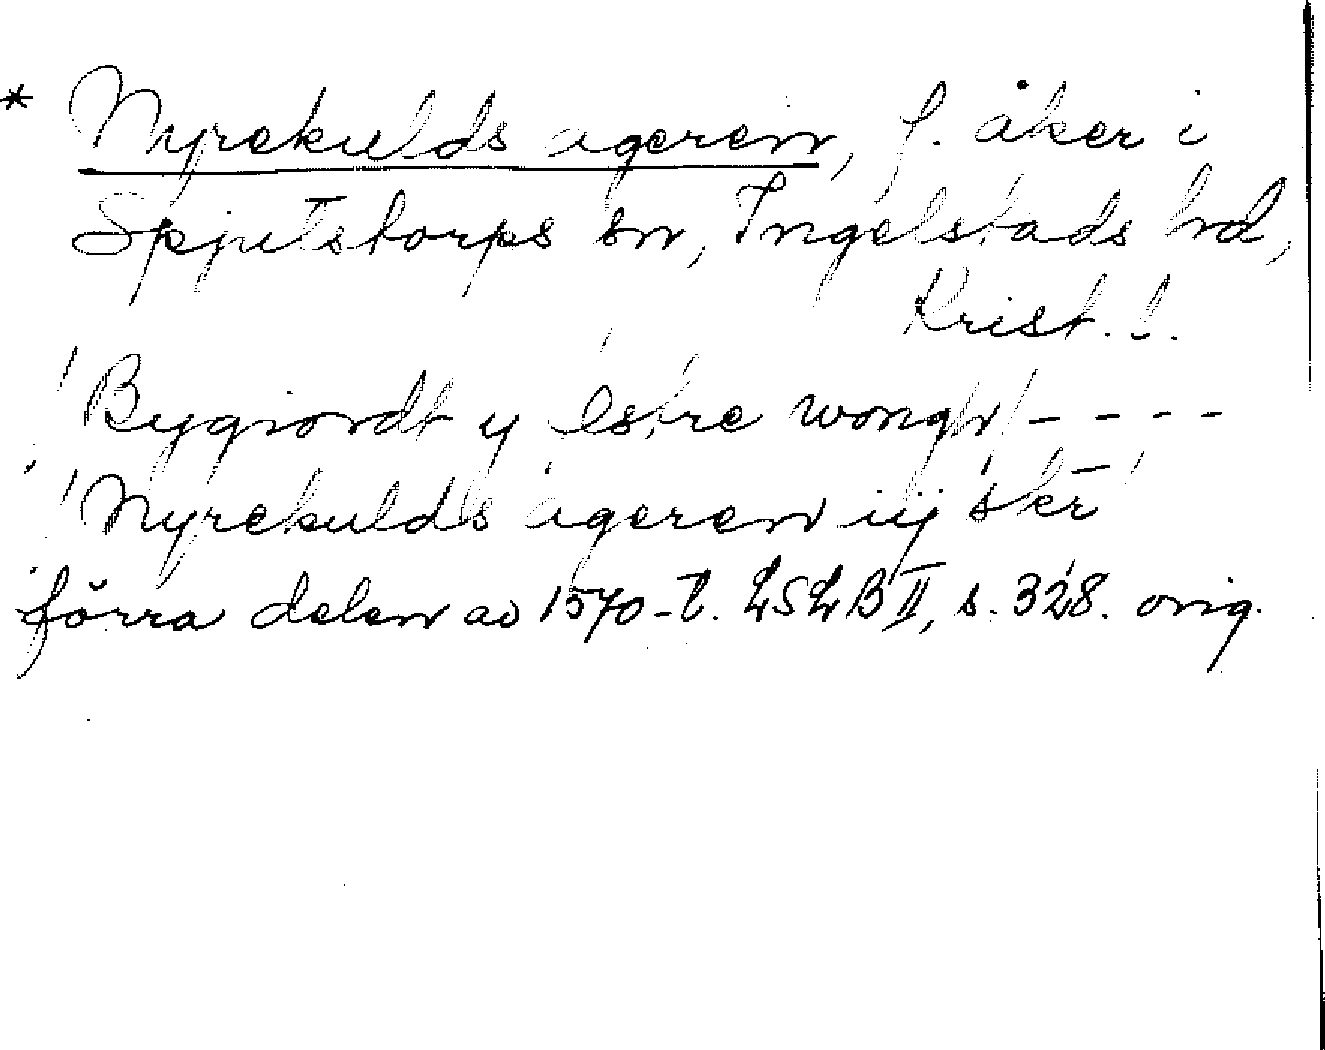 * Nyrekulds ageren, f. åker i
Spjutstorps sn, Ingelstads hd,
Krist. l.
'Bygiordt y Østre wongh' - - - -
- - -
'Nyrekulds ageren iij sker'
förra delen av 1570-t. LSLB II, s. 328. orig.